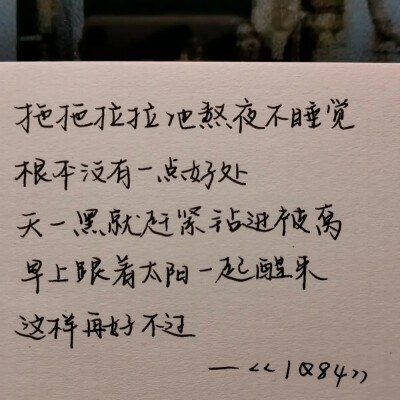 拖拖拉拉地熬夜不睡觉
根本没有一点好处
天一黑就赶紧钻进被窝
早上跟着太阳一起醒来
这样再好不过
—《1Q84》